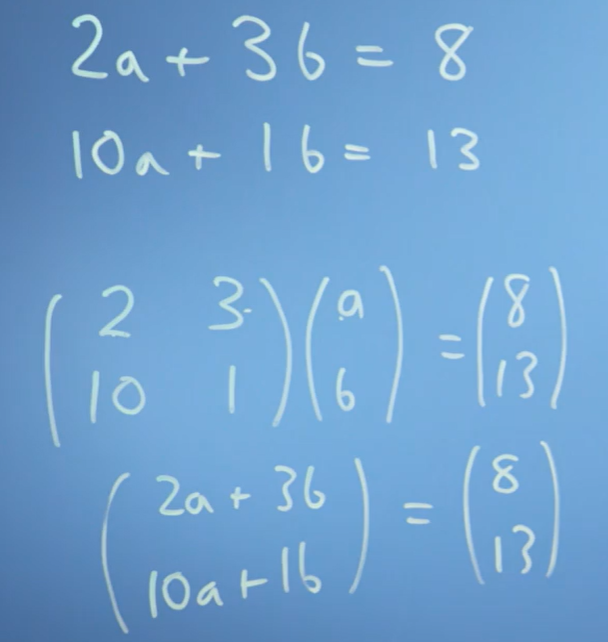 2a + 3b = 8
10a + 1b = 13
( 2 3 ) ( a ) = ( 8 )
( 10 1 ) ( b ) ( 13 )
( 2a + 3b ) = ( 8 )
( 10a + 1b ) ( 13 )